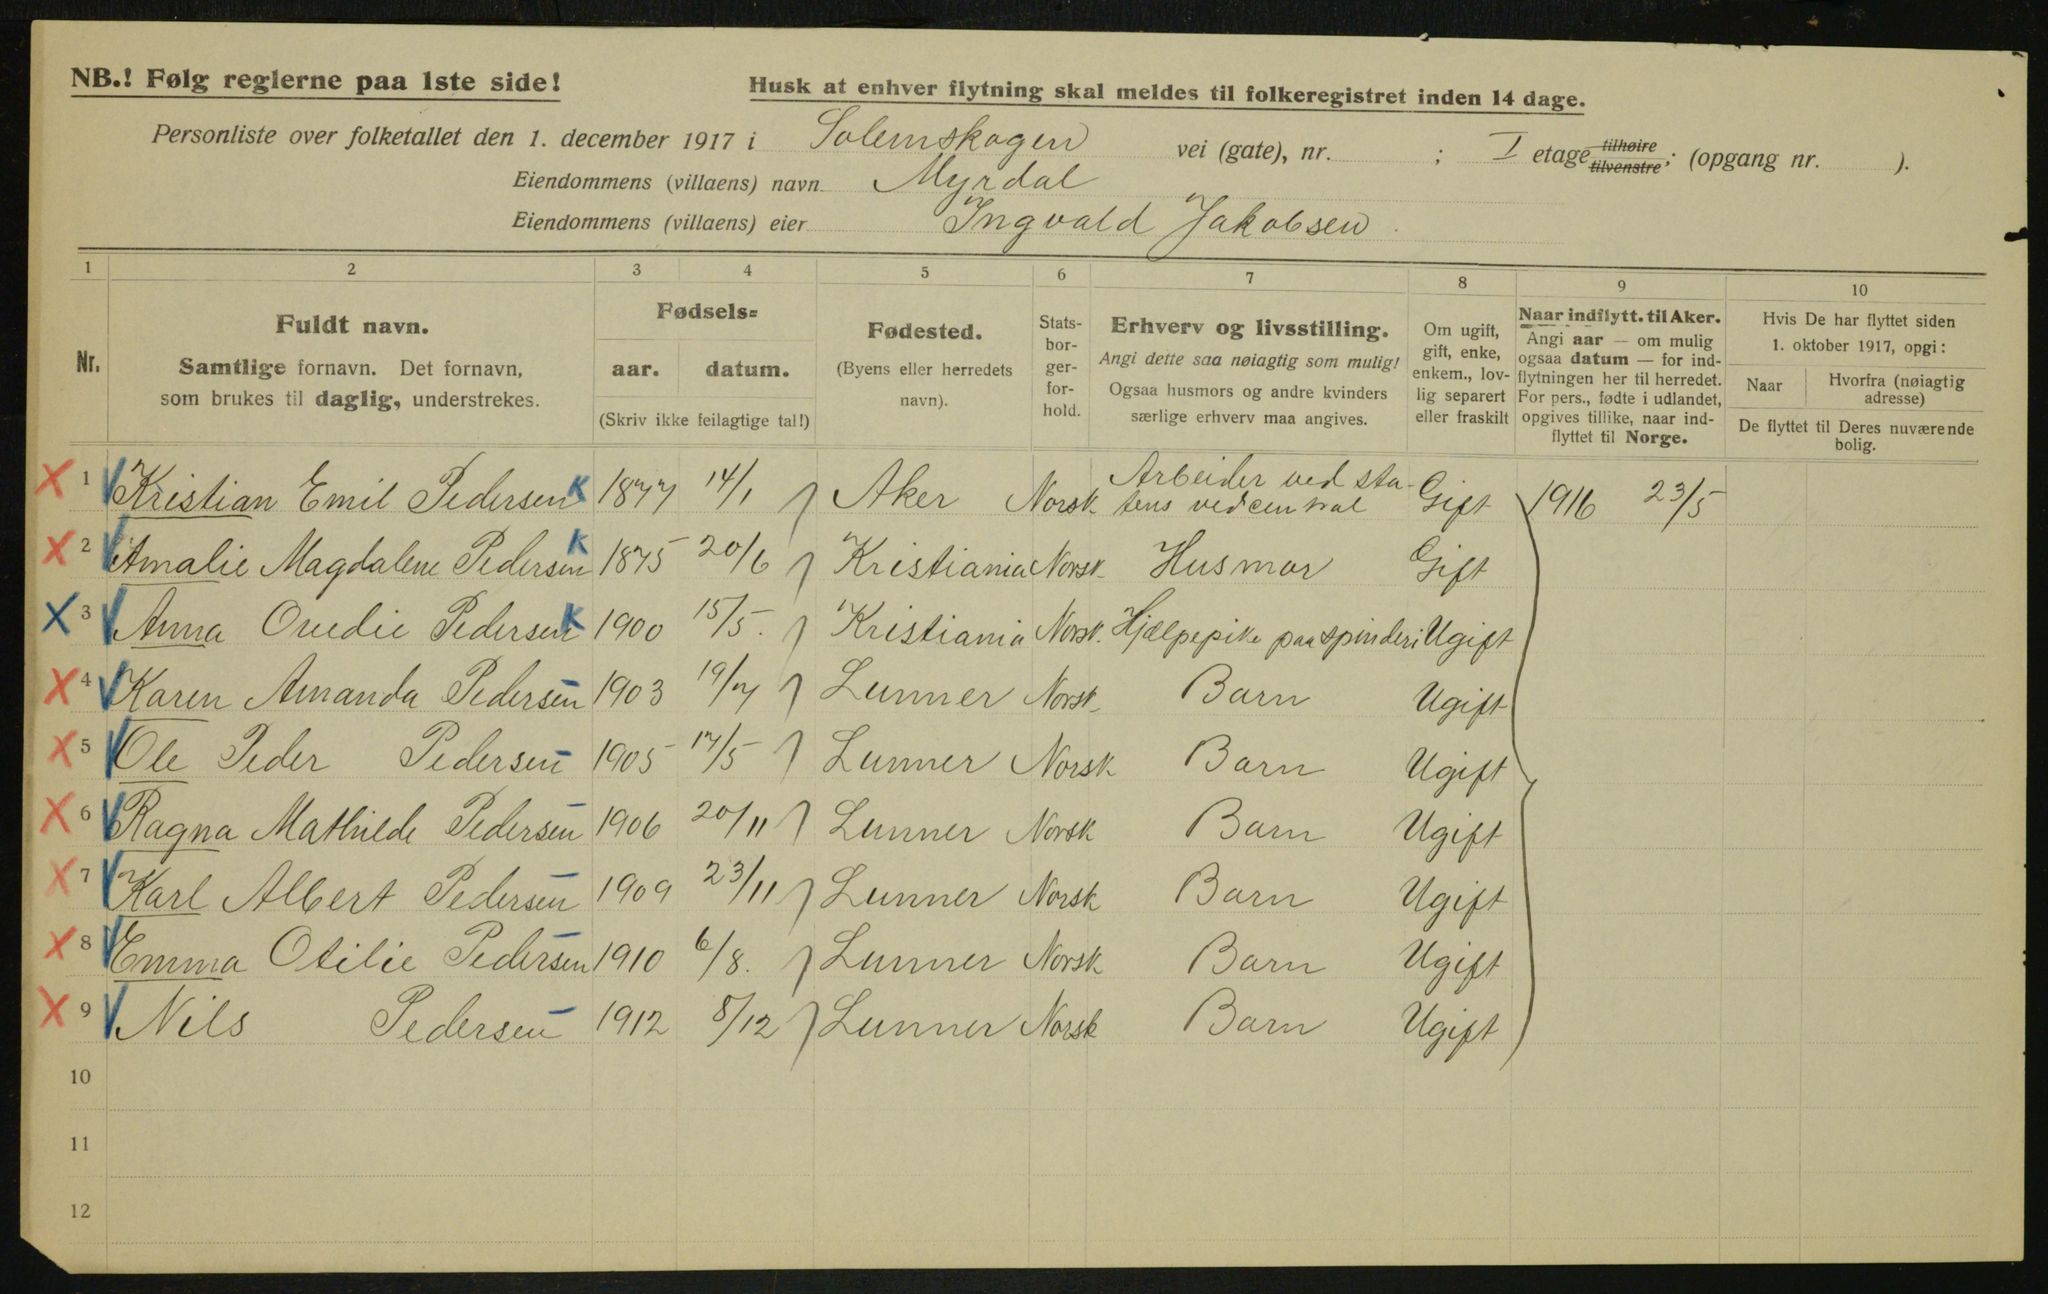 NB.! Følg reglerne paa 1ste side!
Husk at enhver flytning skal meldes til folkeregistret inden 14 dage.
Personliste over folketallet den 1. december 1917 i Solemskogen vei (gate), nr. ; I etage tilhøire tilvenstre; (opgang nr. ).
Eiendommens (villaens) navn Myrdal
Eiendommens (villaens) eier Ingvald Jakobsen.
1 2 3 4 5 6 7 8 9 10
Nr.
Fuldt navn.
Samtlige fornavn. Det fornavn,
som brukes til daglig, understrekes.
Fødsels=
aar. datum.
(Skriv ikke feilagtige tal!)
Fødested.
(Byens eller herredets
navn).
Stats-
bor-
ger-
for-
hold.
Erhverv og livsstilling.
Angi dette saa nøiagtig som mulig!
Ogsaa husmors og andre kvinders
særlige erhverv maa angives.
Om ugift,
gift, enke,
enkem., lov-
lig separert
eller fraskilt
Naar indflytt. til Aker.
Angi aar — om mulig
ogsaa datum — for ind-
flytningen her til herredet.
For pers., fødte i udlandet,
opgives tillike, naar ind-
flyttet til Norge.
Hvis De har flyttet siden
1. oktober 1917, opgi:
Naar Hvorfra (nøiagtig
adresse)
De flyttet til Deres nuværende
bolig.
X 1 Kristian Emil Pedersen K 1877 14/1 Aker Norsk Arbeider ved sta-
tens vedcentral Gift 1916 23/5
X 2 Amalie Magdalene Pedersen K 1875 20/6 Kristiania Norsk Husmor Gift
X 3 Anna Ovedie Pedersen K 1900 15/5. Kristiania Norsk. Hjælpepike paa spinderi Ugift
X 4 Karen Amanda Pedersen 1903 19/7 Lunner Norsk Barn Ugift
X 5 Ole Peder Pedersen 1905 17/5 Lunner Norsk Barn Ugift
X 6 Ragna Mathilde Pedersen 1906 20/11 Lunner Norsk Barn Ugift
X 7 Karl Albert Pedersen 1909 23/11 Lunner Norsk Barn Ugift
X 8 Emma Otilie Pedersen 1910 6/8. Lunner Norsk Barn Ugift
X 9 Nils Pedersen 1912 8/12 Lunner Norsk Barn Ugift
10
11
12